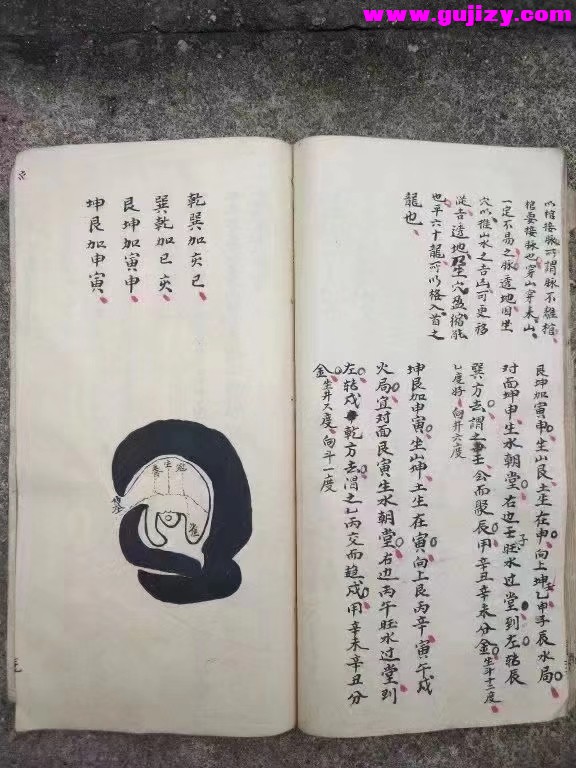 www.gujizy.com
以棺接脉可謂脉不離棺
棺要接脉也穿山穿来山
一定不易之脉透地因坐
穴以推山水之吉凶可更移
從吉透地坐穴盈縮能
也平六十龍所以格入首之
龍也
艮坤加寅申坐山艮土生在申向上坤乙申子辰水局
对面坤申生水朝堂右边壬子旺水过堂到左轉辰
巽方去謂之壬会而聚辰用辛丑辛未分金坐斗十二度
七度好向井六度
坤艮加申寅坐山坤土生在寅向上艮丙辛寅午戌
火局宜对面艮寅生水朝堂右边丙午旺水过堂到
左轉戌乾方去谓之乙丙交而趋戌用辛未辛丑分
金坐井又度向斗一度
乾巽加亥巳
巽乾加巳亥
艮坤加寅申
坤艮加申寅